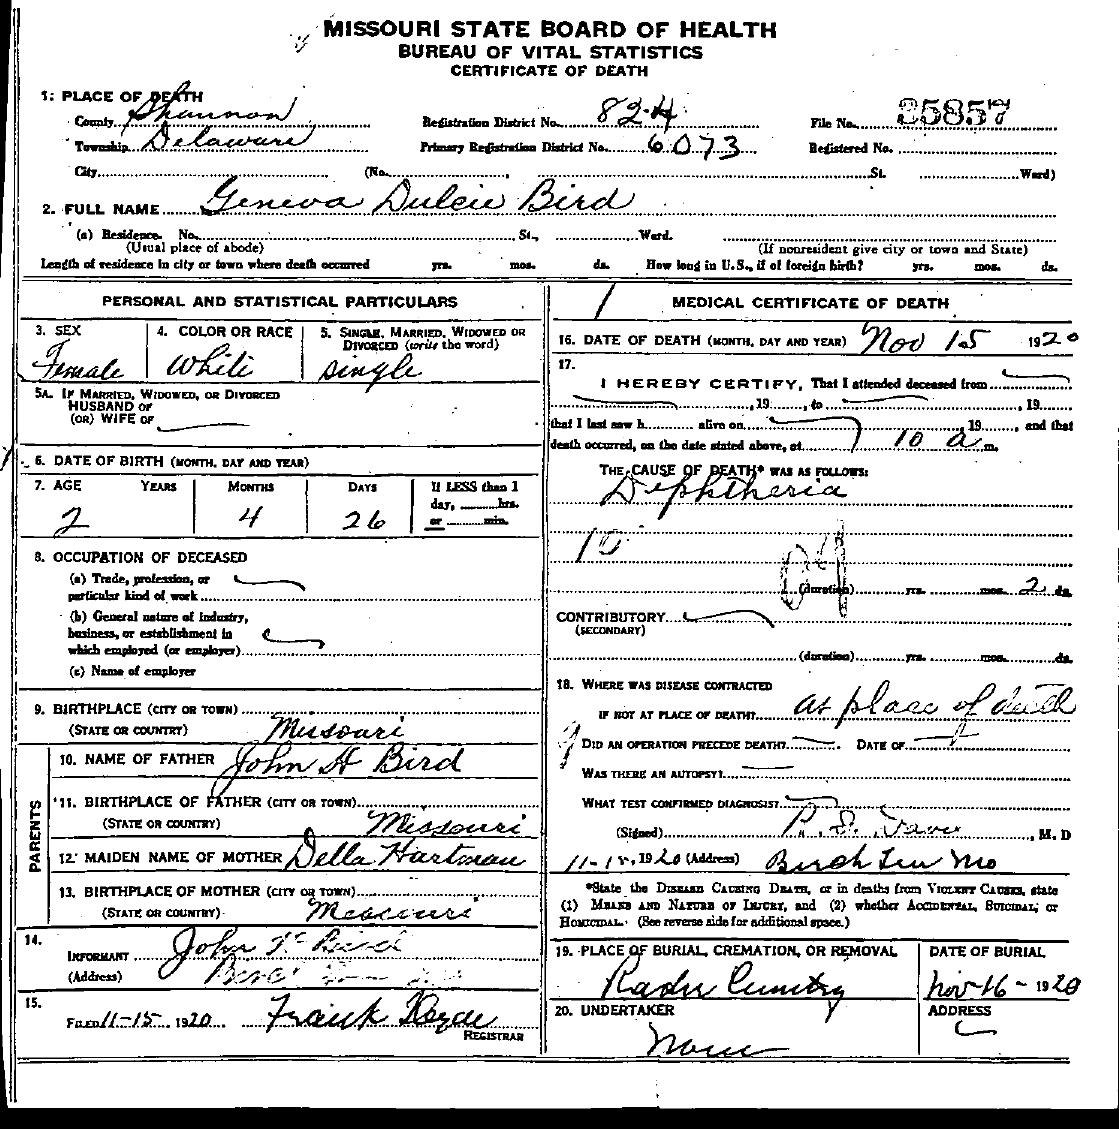 MISSOURI STATE BOARD OF HEALTH
BUREAU OF VITAL STATISTICS
CERTIFICATE OF DEATH
1. PLACE OF DEATH
County Shannon Registration District No. 824 File No. 25857
Township Delaware Primary Registration District No. 6073 Registered No.
City (No. , St. Ward)
2. FULL NAME Geneva Dulcie Bird
(a) Residence. No. St., Ward.
(Usual place of abode) (If nonresident give city or town and State)
Length of residence in city or town where death occurred yrs. mos. ds. How long in U.S., if of foreign birth? yrs. mos. ds.
PERSONAL AND STATISTICAL PARTICULARS
3. SEX 4. COLOR OR RACE 5. SINGLE, MARRIED, WIDOWED OR
DIVORCED (write the word)
Female White Single
5A. IF MARRIED, WIDOWED, OR DIVORCED
HUSBAND OF
(OR) WIFE OF
6. DATE OF BIRTH (MONTH, DAY AND YEAR)
7. AGE YEARS MONTHS DAYS If LESS than 1
day, hrs.
or min.
2 4 26
8. OCCUPATION OF DECEASED
(a) Trade, profession, or
particular kind of work
(b) General nature of industry,
business, or establishment in
which employed (or employer)
(c) Name of employer
9. BIRTHPLACE (CITY OR TOWN)
(STATE OR COUNTRY) Missouri
PARENTS
10. NAME OF FATHER John H Bird
11. BIRTHPLACE OF FATHER (CITY OR TOWN)
(STATE OR COUNTRY) Missouri
12. MAIDEN NAME OF MOTHER Della Hartman
13. BIRTHPLACE OF MOTHER (CITY OR TOWN)
(STATE OR COUNTRY) Missouri
14.
INFORMANT John H Bird
(Address)
15.
FILED 11-15 1920 Frank
REGISTRAR
MEDICAL CERTIFICATE OF DEATH
16. DATE OF DEATH (MONTH, DAY AND YEAR) Nov 15 1920
17.
I HEREBY CERTIFY, That I attended deceased from
, 19 , to , 19
that I last saw h alive on , 19 , and that
death occurred, on the date stated above, at 10 a m.
THE CAUSE OF DEATH* WAS AS FOLLOWS:
Diphtheria
10
(duration) yrs. mos. 2 ds.
CONTRIBUTORY
(SECONDARY)
(duration) yrs. mos. ds.
18. WHERE WAS DISEASE CONTRACTED
IF NOT AT PLACE OF DEATH? at place of death
DID AN OPERATION PRECEDE DEATH? DATE OF
WAS THERE AN AUTOPSY?
WHAT TEST CONFIRMED DIAGNOSIS?
(Signed) , M. D
11-15, 1920 (Address) Birch Tree Mo
*State the DISEASE CAUSING DEATH, or in deaths from VIOLENT CAUSES, state
(1) MEANS AND NATURE OF INJURY, and (2) whether ACCIDENTAL, SUICIDAL, or
HOMICIDAL. (See reverse side for additional space.)
19. PLACE OF BURIAL, CREMATION, OR REMOVAL DATE OF BURIAL
Nov 16 - 1920
20. UNDERTAKER ADDRESS
None